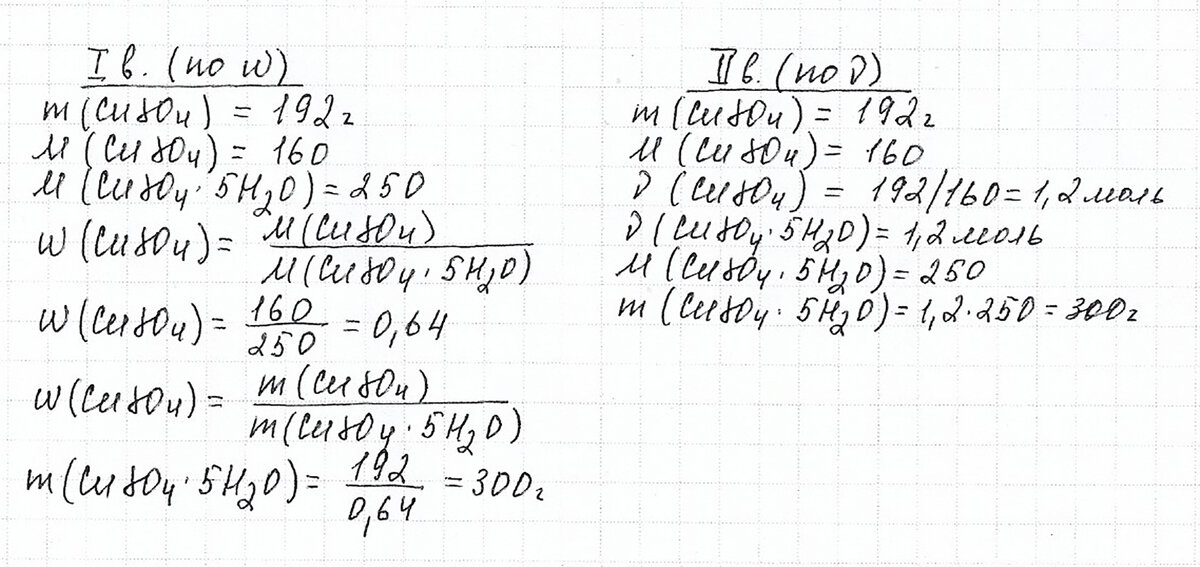 I в. (по w)
m(CuSO₄) = 192г
M(CuSO₄) = 160
M(CuSO₄·5H₂O) = 250
w(CuSO₄) = M(CuSO₄) / M(CuSO₄·5H₂O)
w(CuSO₄) = 160 / 250 = 0,64
w(CuSO₄) = m(CuSO₄) / m(CuSO₄·5H₂O)
m(CuSO₄·5H₂O) = 192 / 0,64 = 300г
II в. (по ν)
m(CuSO₄) = 192г
M(CuSO₄) = 160
ν(CuSO₄) = 192/160 = 1,2 моль
ν(CuSO₄·5H₂O) = 1,2 моль
M(CuSO₄·5H₂O) = 250
m(CuSO₄·5H₂O) = 1,2·250 = 300г